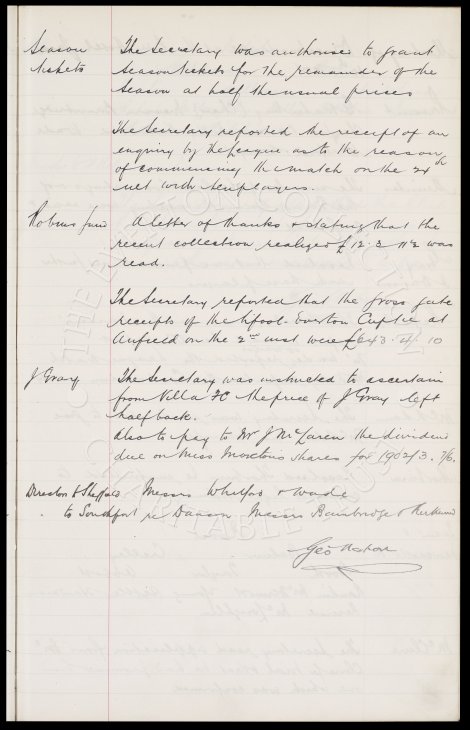 Season The Secretary was authorised to grant
tickets season tickets for the remainder of the
season at half the usual prices
The Secretary reported the receipt of an
enquiry by the League as to the reason
of commencing the match on the 24th
ult with ten players.
Robins fund A letter of thanks & stating that the
recent collection realized £12.3.11½ was
read.
The Secretary reported that the gross gate
receipts of the L'pool-Everton Cup tie at
Anfield on the 2nd inst were £643.4.10
J Gray The Secretary was instructed to ascertain
from Villa FC the price of J Gray left
half back.
Also to pay to Mr J McLaren the dividend
due on Miss Moreton's shares for 1902/3. 7/6.
Directors to Sheffield Messrs Whelfor & Wade
to Southport re Dawson Messrs Bainbridge & Kirkland
Geo Mahon